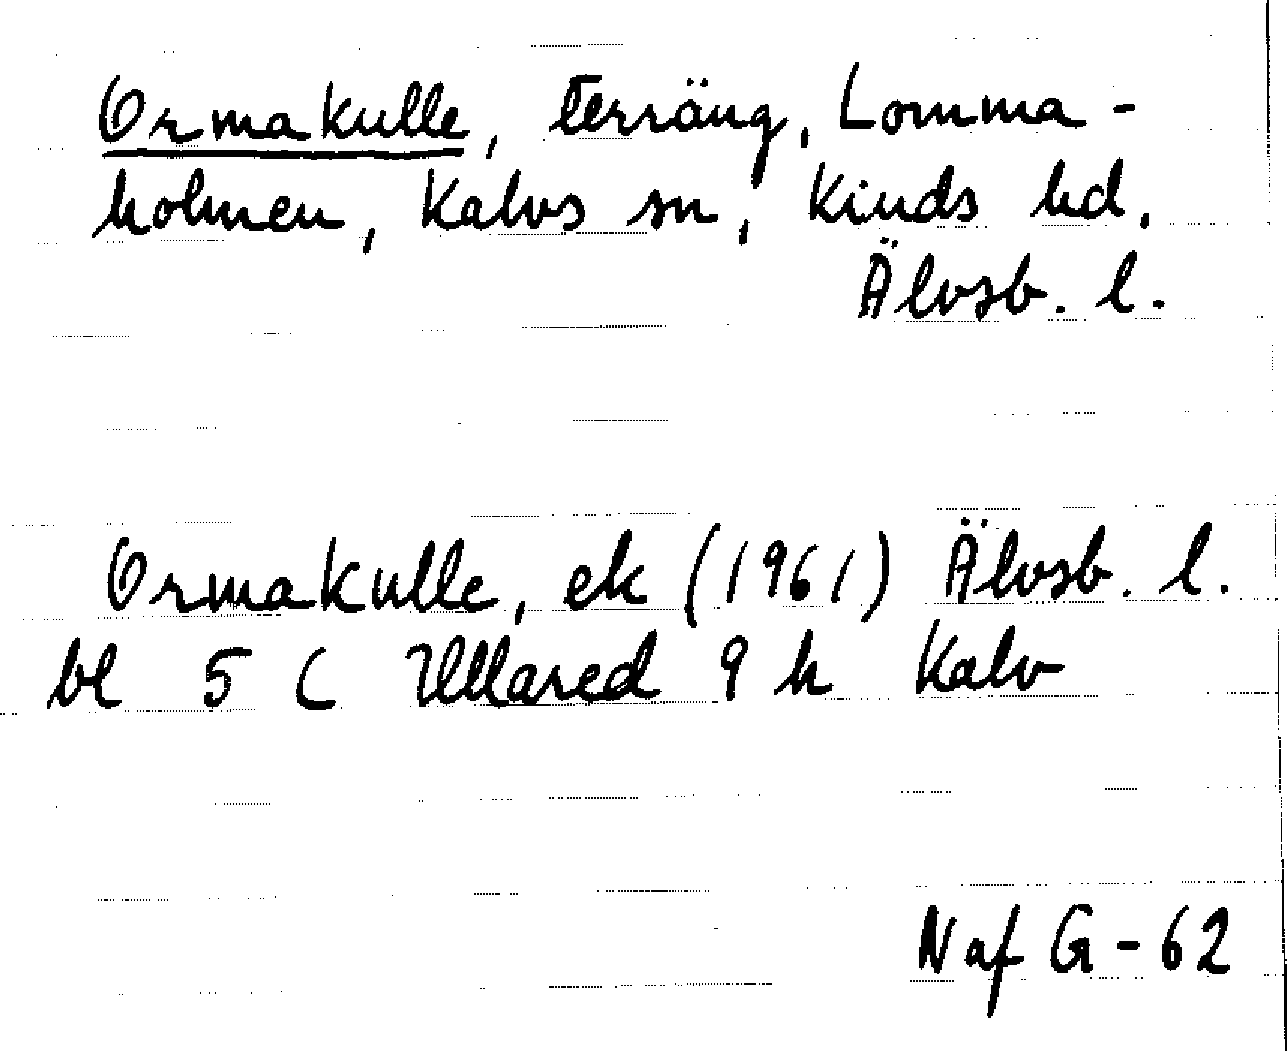 Ormakulle, terräng, Lomma-
holmen, Kalvs sn, Kinds hd,
Älvsb. l.
Ormakulle, ek (1961) Älvsb. l.
bl 5 C Ullared 9 h Kalv
Naf G-62